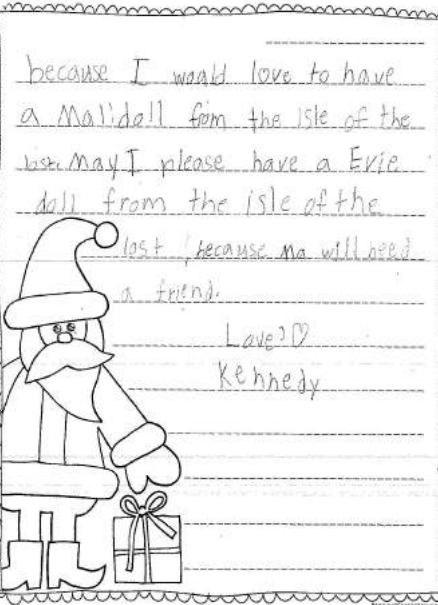 because I woald love to have
a Mal doll from the Isle of the
lost. May I please have a Evie
doll from the isle of the
lost, because Ma will need
a friend.
Love, ♡
Kennedy